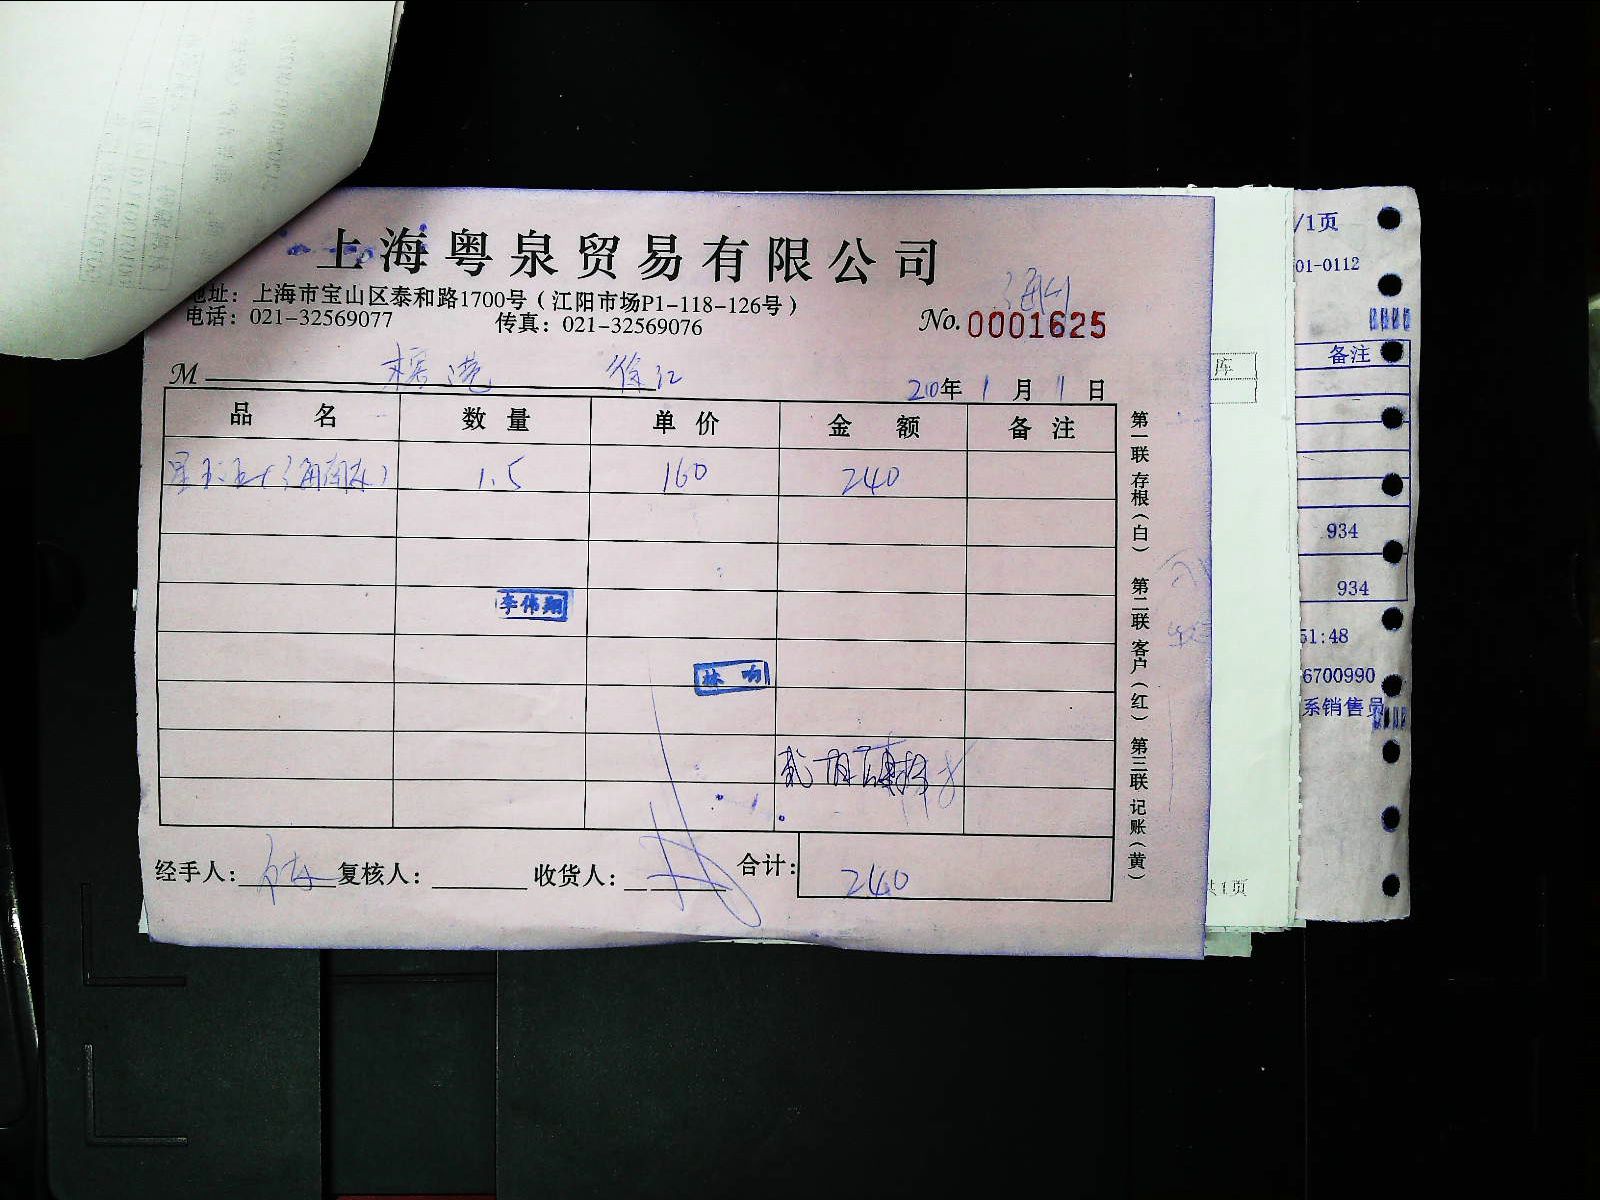 上海粤泉贸易有限公司
地址：上海市宝山区泰和路1700号（江阳市场P1-118-126号）
电话：021-32569077 传真：021-32569076
No. 0001625
M 徐汇
年 1 月 1 日
品 名 数 量 单 价 金 额 备 注
1.5 160 240
李伟翔
林 响
经手人： 复核人： 收货人： 合计： 240
第一联 存根（白） 第二联 客户（红） 第三联 记账（黄）
/1页
01-0112
备注
库
934
934
51:48
6700990
系销售员
共1页